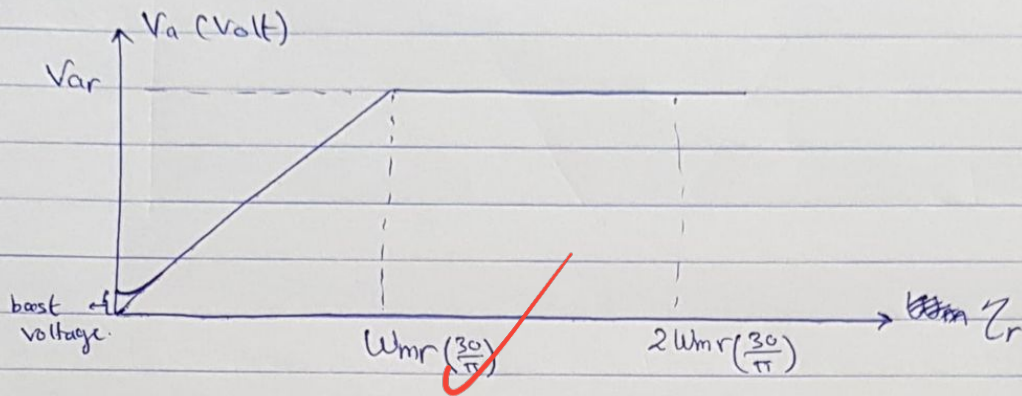 Va (Volt)
Var
boost
voltage.
Wmr(30/π)
2Wmr(30/π)